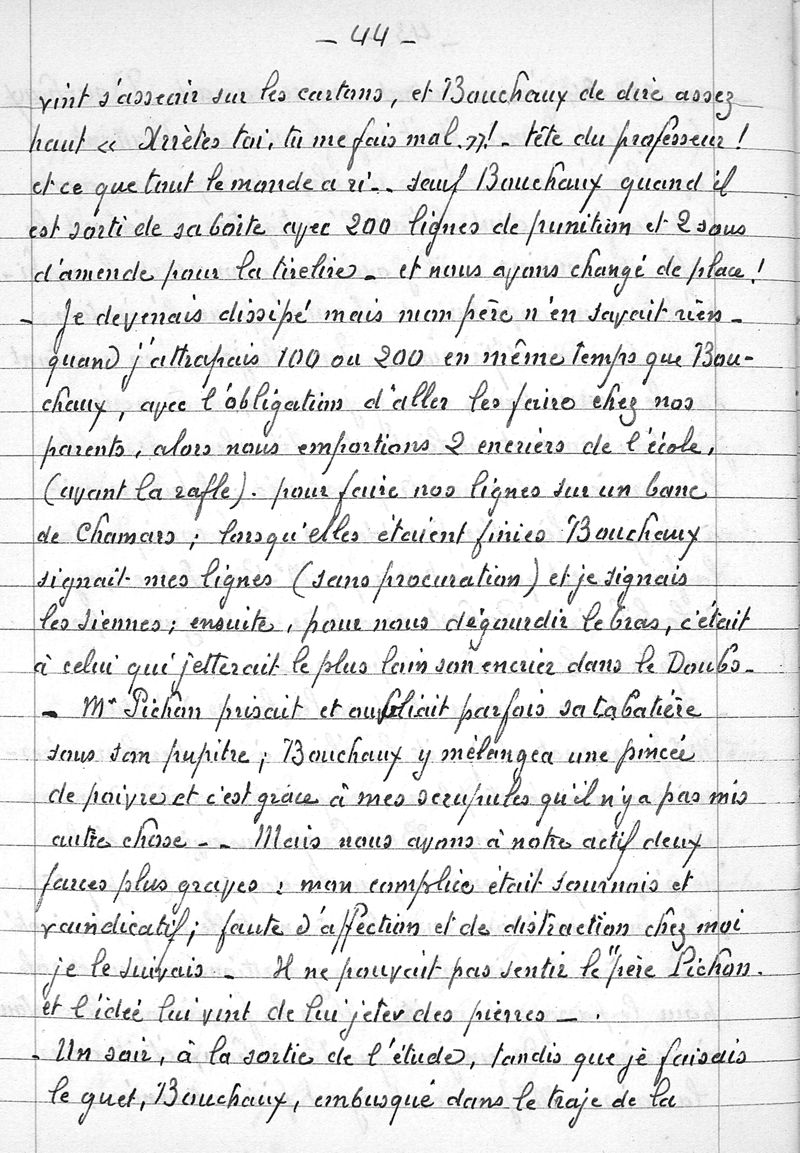 - 44 -
vint s'asseoir sur les cartons, et Bouchaux de dire assez
haut « Arrètes toi, tu me fais mal. »! - tête du professeur !
et ce que tout le monde a ri -.. sauf Bouchaux quand il
est sorti de sa boite avec 200 lignes de punition et 2 sous
d'amende pour la tirelire - et nous avons changé de place !
- Je devenais dissipé mais mon père n'en savait rien -
quand j'attrapais 100 ou 200 en même temps que Bou-
chaux, avec l'obligation d'aller les faire chez nos
parents, alors nous emportions 2 encriers de l'école,
(avant la rafle). pour faire nos lignes sur un banc
de Chamars ; lorsqu'elles étaient finies Bouchaux
signait mes lignes (sans procuration) et je signais
les siennes ; ensuite, pour nous dégourdir le bras, c'était
à celui qui jetterait le plus loin son encrier dans le Doubs -
- Mr Pichon prisait et oubliait parfois sa tabatière
sous son pupitre ; Bouchaux y mélangea une pincée
de poivre et c'est grâce à mes scrupules qu'il n'y a pas mis
autre chose - - Mais nous avons à notre actif deux
farces plus graves : mon complice était sournois et
vaindicatif ; faute d'affection et de distraction chez moi
je le suivais - Il ne pouvait pas sentir le "père Pichon.
et l'idée lui vint de lui jeter des pierres - .
- Un soir, à la sortie de l'étude, tandis que je faisais
le guet, Bouchaux, embusqué dans le traje de la